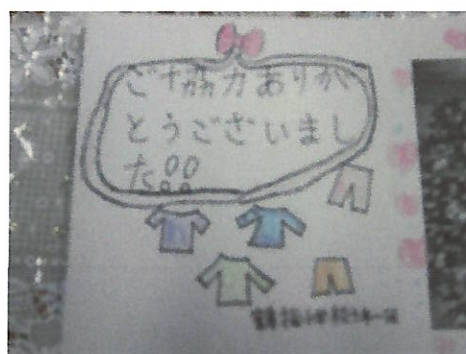 ご協力ありが
とうございまし
た!!